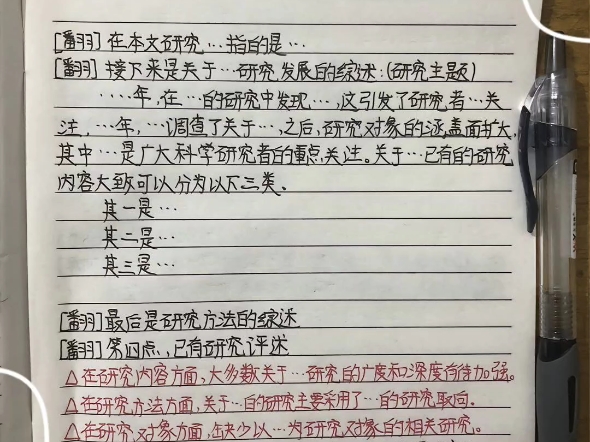 [翻羽] 在本文研究…指的是…
[翻羽] 接下来是关于…研究发展的综述:(研究主题)
….年,在…的研究中发现…,这引发了研究者…关
注,…年,…调查了关于…,之后,研究对象的涵盖面扩大,
其中…是广大科学研究者的重点关注。关于…已有的研究
内容大致可以分为以下三类。
其一是…
其二是…
其三是…
[翻羽] 最后是研究方法的综述
[翻羽] 第四点,已有研究评述
△在研究内容方面,大多数关于…研究的广度和深度有待加强。
△在研究方法方面,关于…的研究主要采用了…的研究取向。
△在研究对象方面,缺少以…为研究对象的相关研究。